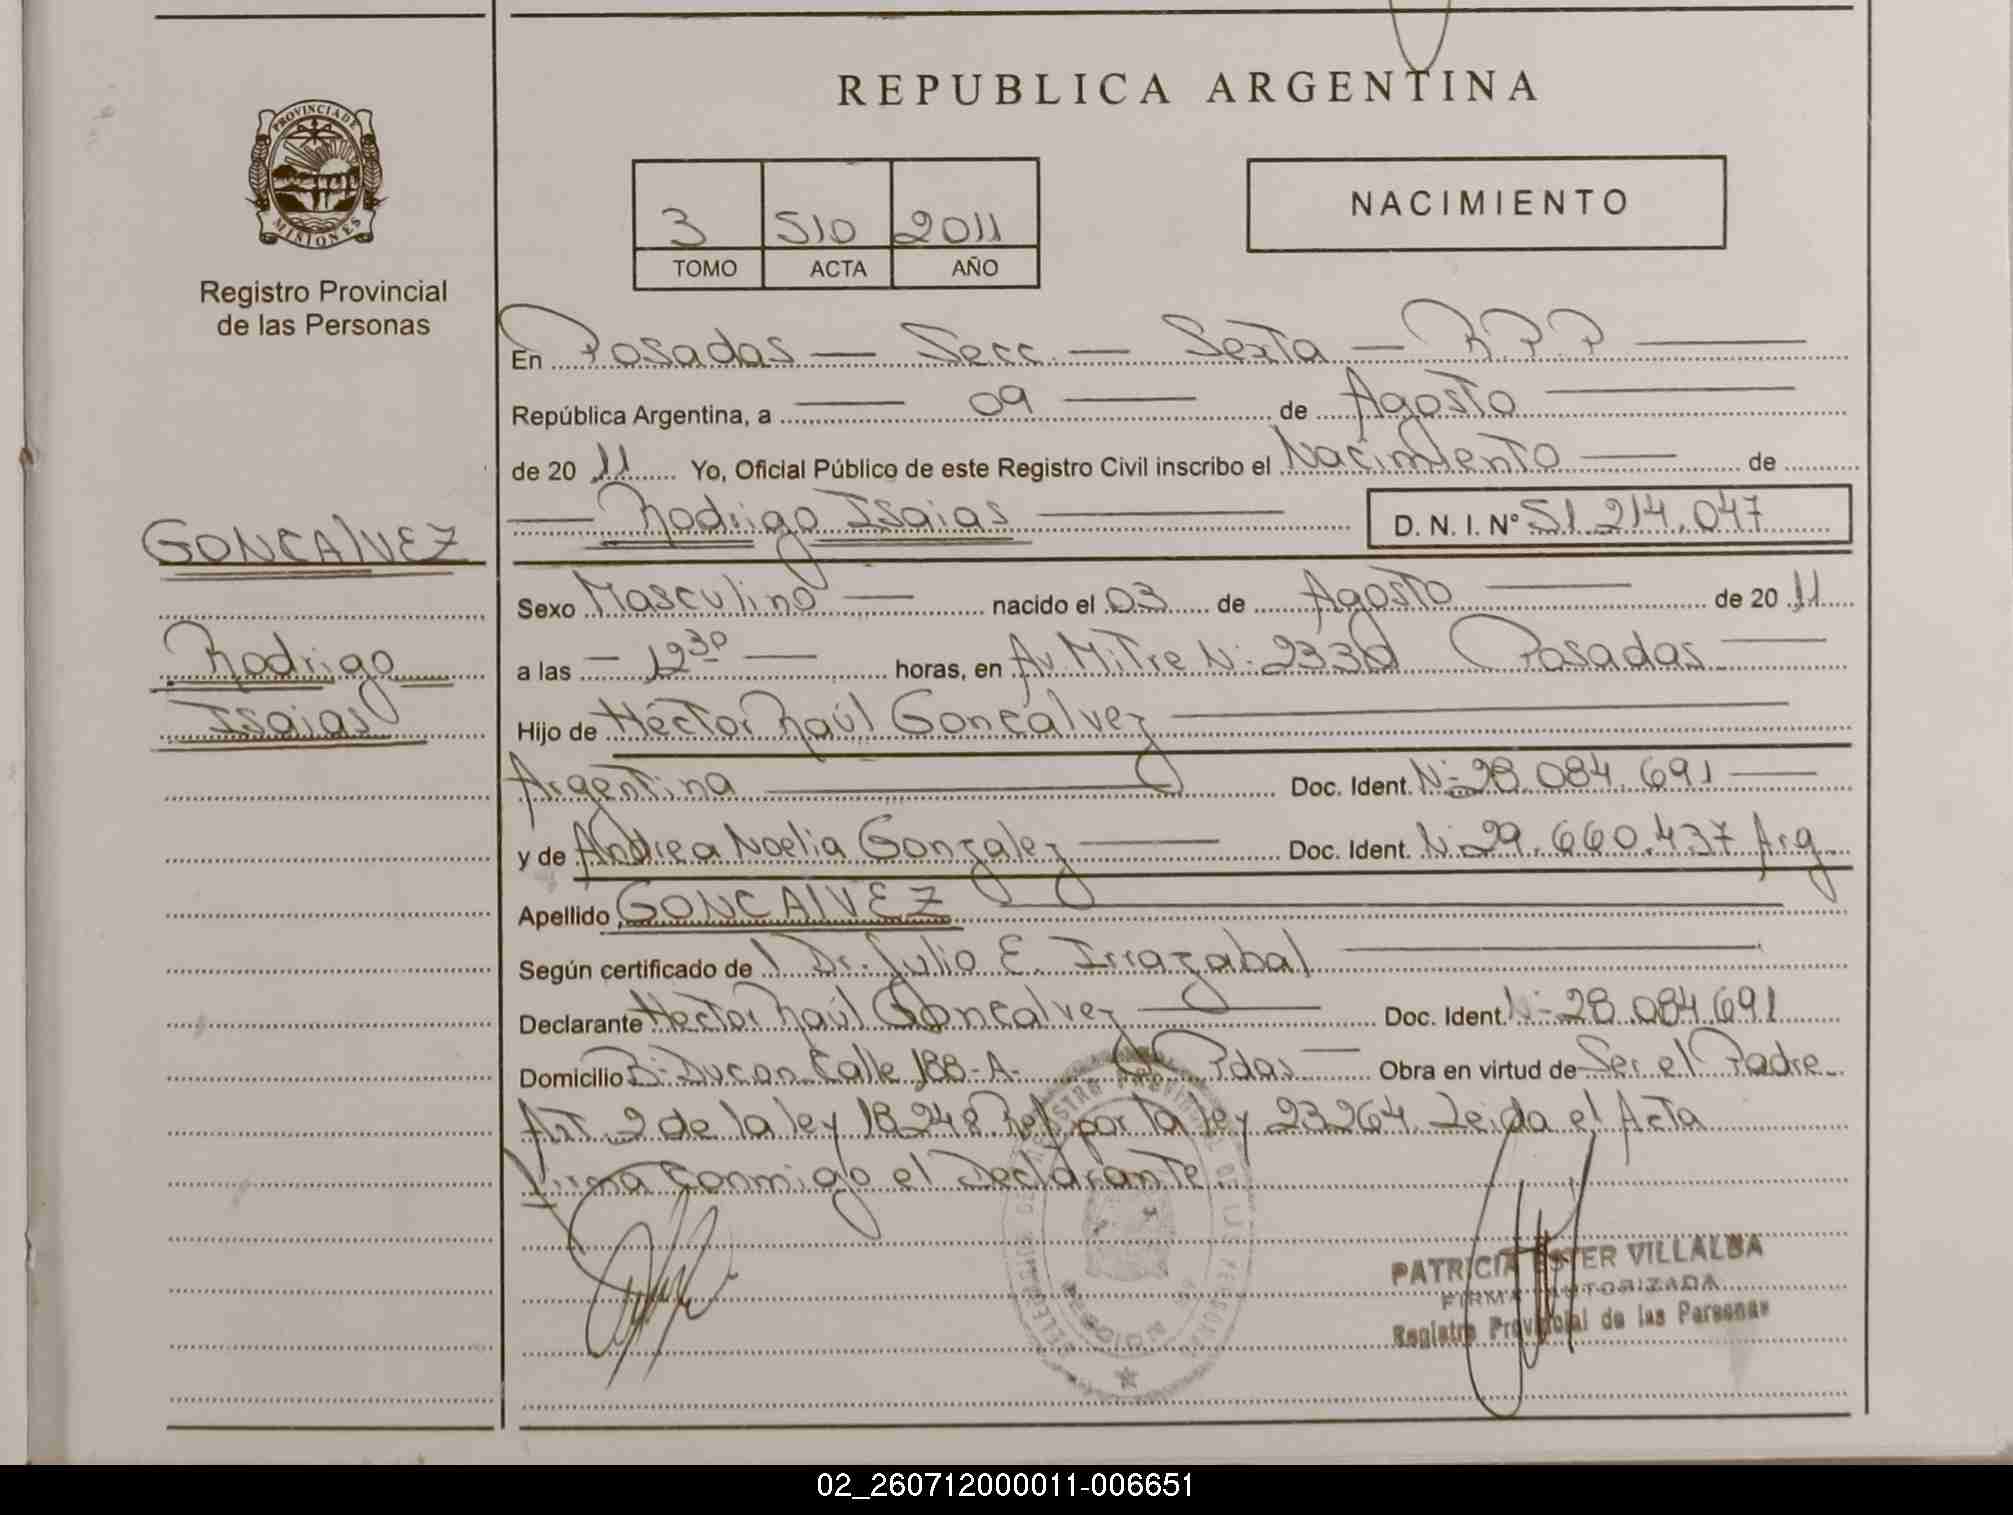 REPUBLICA ARGENTINA
PROVINCIA DE
MISIONES
Registro Provincial
de las Personas
3 510 2011
TOMO ACTA AÑO
NACIMIENTO
En Posadas — Secc. — Sexta — R.P.P
República Argentina, a 09 de Agosto
de 20 11 Yo, Oficial Público de este Registro Civil inscribo el Nacimiento de
Rodrigo Isaias D. N. I. N° 51.214.047
GONCALVEZ
Rodrigo
Isaias
Sexo Masculino nacido el 03 de Agosto de 20 11
a las 12 30 horas, en Av. Mitre N: 2330 Posadas
Hijo de Héctor Raúl Goncalvez
Argentina Doc. Ident. N: 28.084.691
y de Andrea Noelia Gonzalez Doc. Ident. N: 29.660.437 Arg
Apellido GONCALVEZ
Según certificado de Dr. Julio E. Irrazabal
Declarante Hector Raúl Goncalvez Doc. Ident. N: 28.084.691
Domicilio B: Calle 188-A- Pdas Obra en virtud de Ser el Padre
Art. 2 de la ley 18248 Ref. por la ley 23264. Leida el Acta
Firma Conmigo el Declarante.
PATRICIA ESTER VILLALBA
FIRMA AUTORIZADA
Registro Provincial de las Personas
02_260712000011-006651